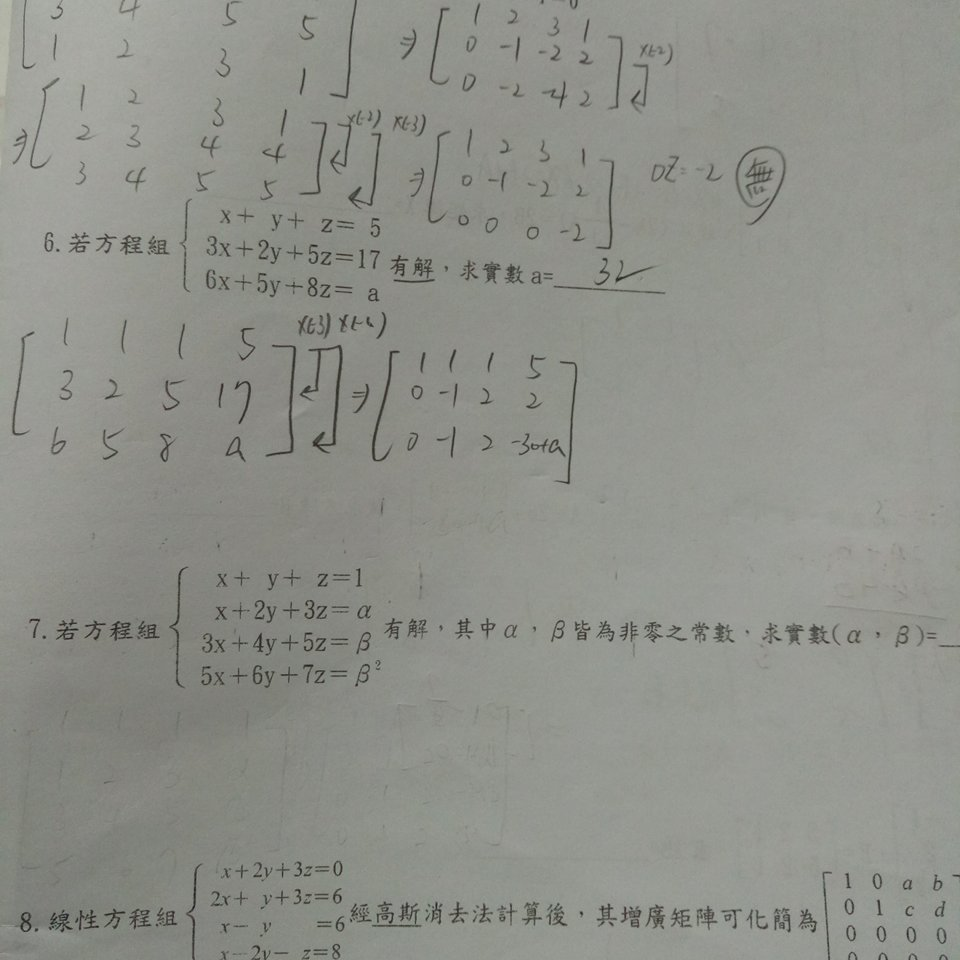 3 4 5 5
1 2 3 1
⇒ 1 2 3 1
0 -1 -2 2
0 -2 -4 2
x(-2)
⇒ 1 2 3 1
2 3 4 4
3 4 5 5
x(-2) x(-3)
⇒ 1 2 3 1
0 -1 -2 2
0 0 0 -2
0Z=-2 無
6.若方程組
x+ y+ z= 5
3x+2y+5z=17
6x+5y+8z= a
有解,求實數a= 32
1 1 1 5
3 2 5 17
6 5 8 a
x(-3) x(-6)
⇒ 1 1 1 5
0 -1 2 2
0 -1 2 -30+a
7.若方程組
x+ y+ z=1
x+2y+3z=α
3x+4y+5z=β
5x+6y+7z=β²
有解,其中α,β皆為非零之常數,求實數(α,β)=
8.線性方程組
x+2y+3z=0
2x+ y+3z=6
x- y =6
x-2y- z=8
經高斯消去法計算後,其增廣矩陣可化簡為
1 0 a b
0 1 c d
0 0 0 0
0 0 0 0